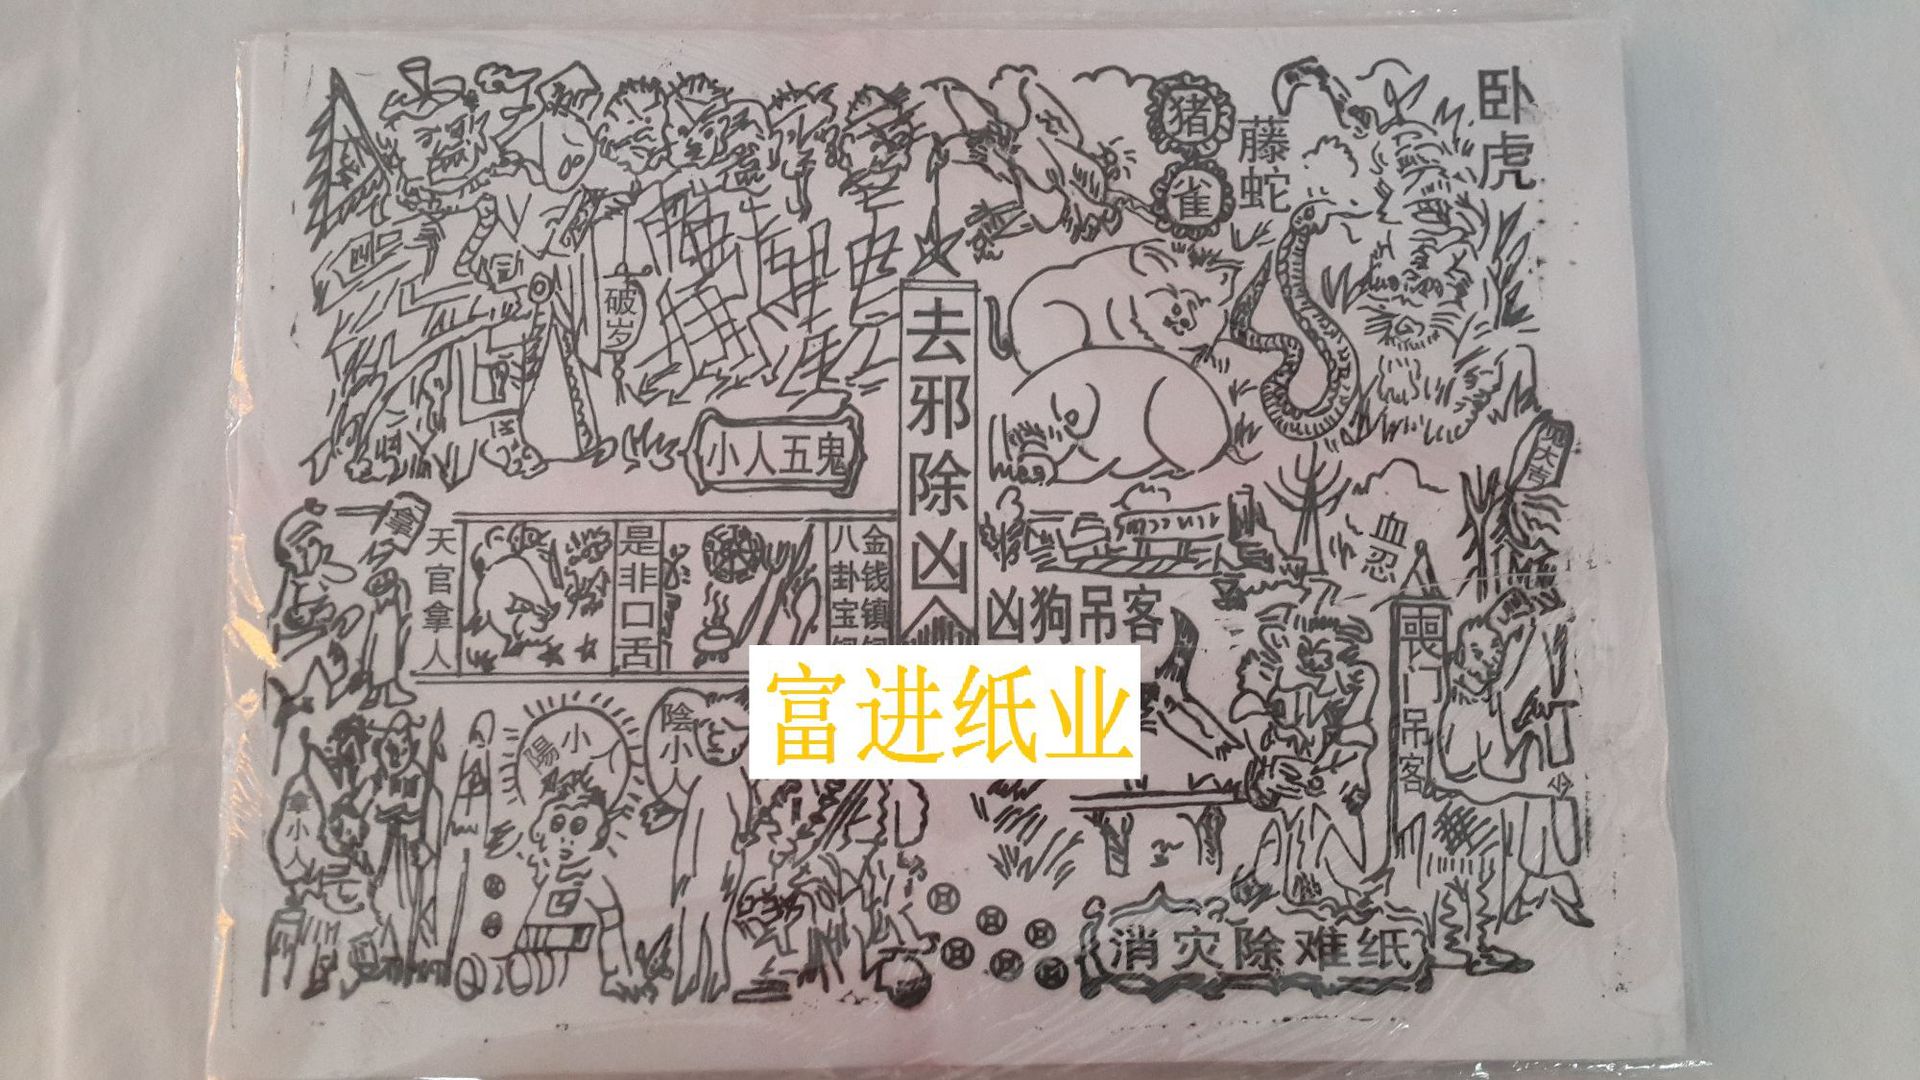 卧虎
猪雀
藤蛇
破岁
去邪除凶
小人五鬼
见大吉
拿
天官拿人
是非口舌
金钱镇
八卦宝
血忍
凶狗吊客
喪门吊客
富进纸业
陰小人
陽小人
小人
消灾除难纸